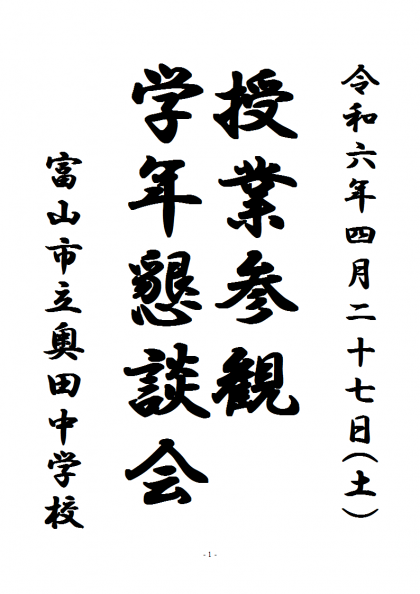 令和六年四月二十七日(土)
授業参観
学年懇談会
富山市立奥田中学校
- 1 -